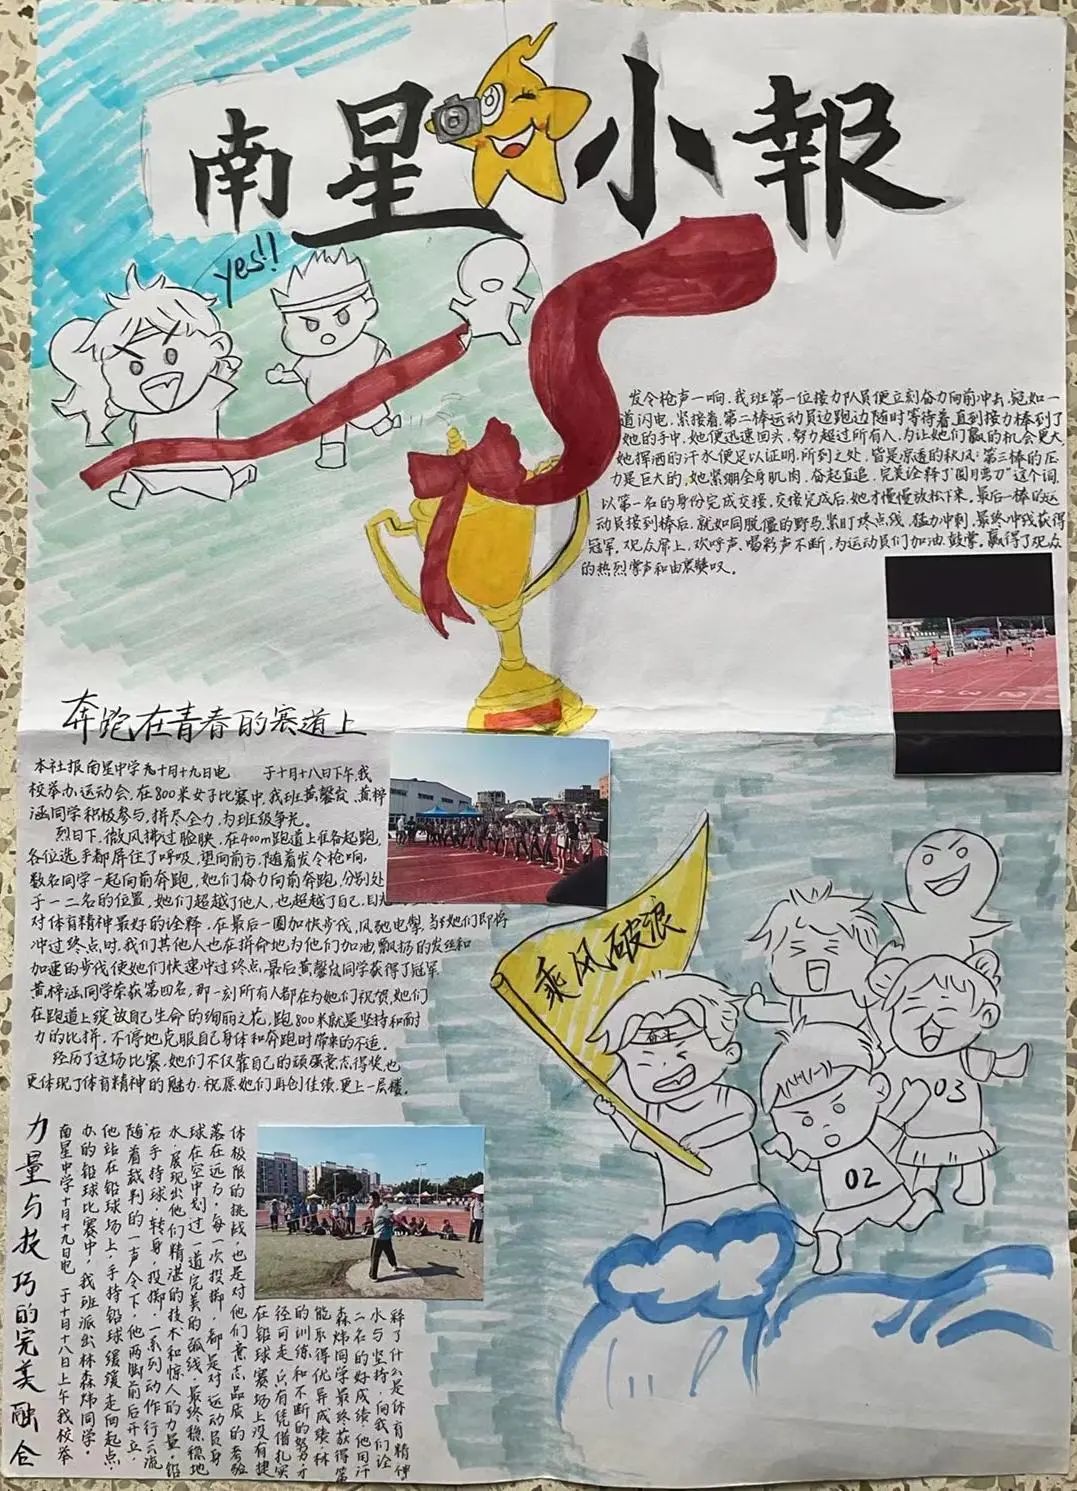 南星小報
yes!!
发令枪声一响,我班第一位接力队员便立刻奋力向前冲去,宛如一
道闪电,紧接着,第二棒运动员边跑边随时等待着,直到接力棒到了
她的手中,她便迅速回头,努力超过所有人,为让她们赢的机会更大
她挥洒的汗水便足以证明,所到之处,皆是凉透的秋风;第三棒的压
力是巨大的,她紧绷全身肌肉,奋起直追,完美诠释了"圆月弯刀"这个词,
以第一名的身份完成交接,交接完成后,她才慢慢放松下来。最后一棒的运
动员接到棒后,就如同脱僵的野马,紧盯终点线,猛力冲刺,最终冲线获得
冠军,观众席上,欢呼声、喝彩声不断,为运动员们加油、鼓掌。赢得了观众
的热烈掌声和由衷赞叹。
奔跑在青春的赛道上
本社报南星中学 十月十九日电 于十月十八日下午,我
校举办运动会,在800米女子比赛中,我班黄馨 、黄梓
涵同学积极参与,拼尽全力,为班级争光。
烈日下,微风拂过脸映,在400m跑道上准备起跑,
各位选手都屏住了呼吸,望向前方,随着发令枪响,
数名同学一起向前奔跑,她们奋力向前奔跑,分别处
于一二名的位置,她们超越了他人,也超越了自己,
对体育精神最好的诠释,在最后一圈加快步伐,风驰电掣,当她们即将
冲过终点时,我们其他人也在拼命地为他们加油,飘扬的发丝和
加速的步伐使她们快速冲过终点,最后黄馨 同学获得了冠军
黄梓涵同学荣获第四名,那一刻所有人都在为她们祝贺,她们
在跑道上绽放自己生命的绚丽之花,跑800米就是坚持和耐
力的比拼,不停地克服自己身体和奔跑时带来的不适。
经历了这场比赛,她们不仅靠自己的顽强意志得奖,也
更体现了体育精神的魅力,祝愿她们再创佳绩,更上一层楼。
乘风破浪
奋斗
03
02
力量与技巧的完美融合
南星中学十月十九日电 于十月十八日上午我校举
办的铅球比赛中,我班派出林森炜同学。
他站在铅球场上,手持铅球缓缓走向起点,
随着裁判的一声令下,他两脚前后开立,
右手持球,转身,投掷,一系列动作行云流
水,展现出他们精湛的技术和惊人的力量,铅
球在空中划过一道完美的弧线,最终稳稳地
落在远方,每一次投掷,都是对运动员身
体极限的挑战,也是对他们意志品质的考验
在铅球赛场上没有捷
径可走,只有凭借扎实
的训练和不断的努力,才
能乐得优异成绩,林
森炜同学最终获得第
二名的好成绩,他用汗
水与坚持,向我们诠
释了什么是体育精神